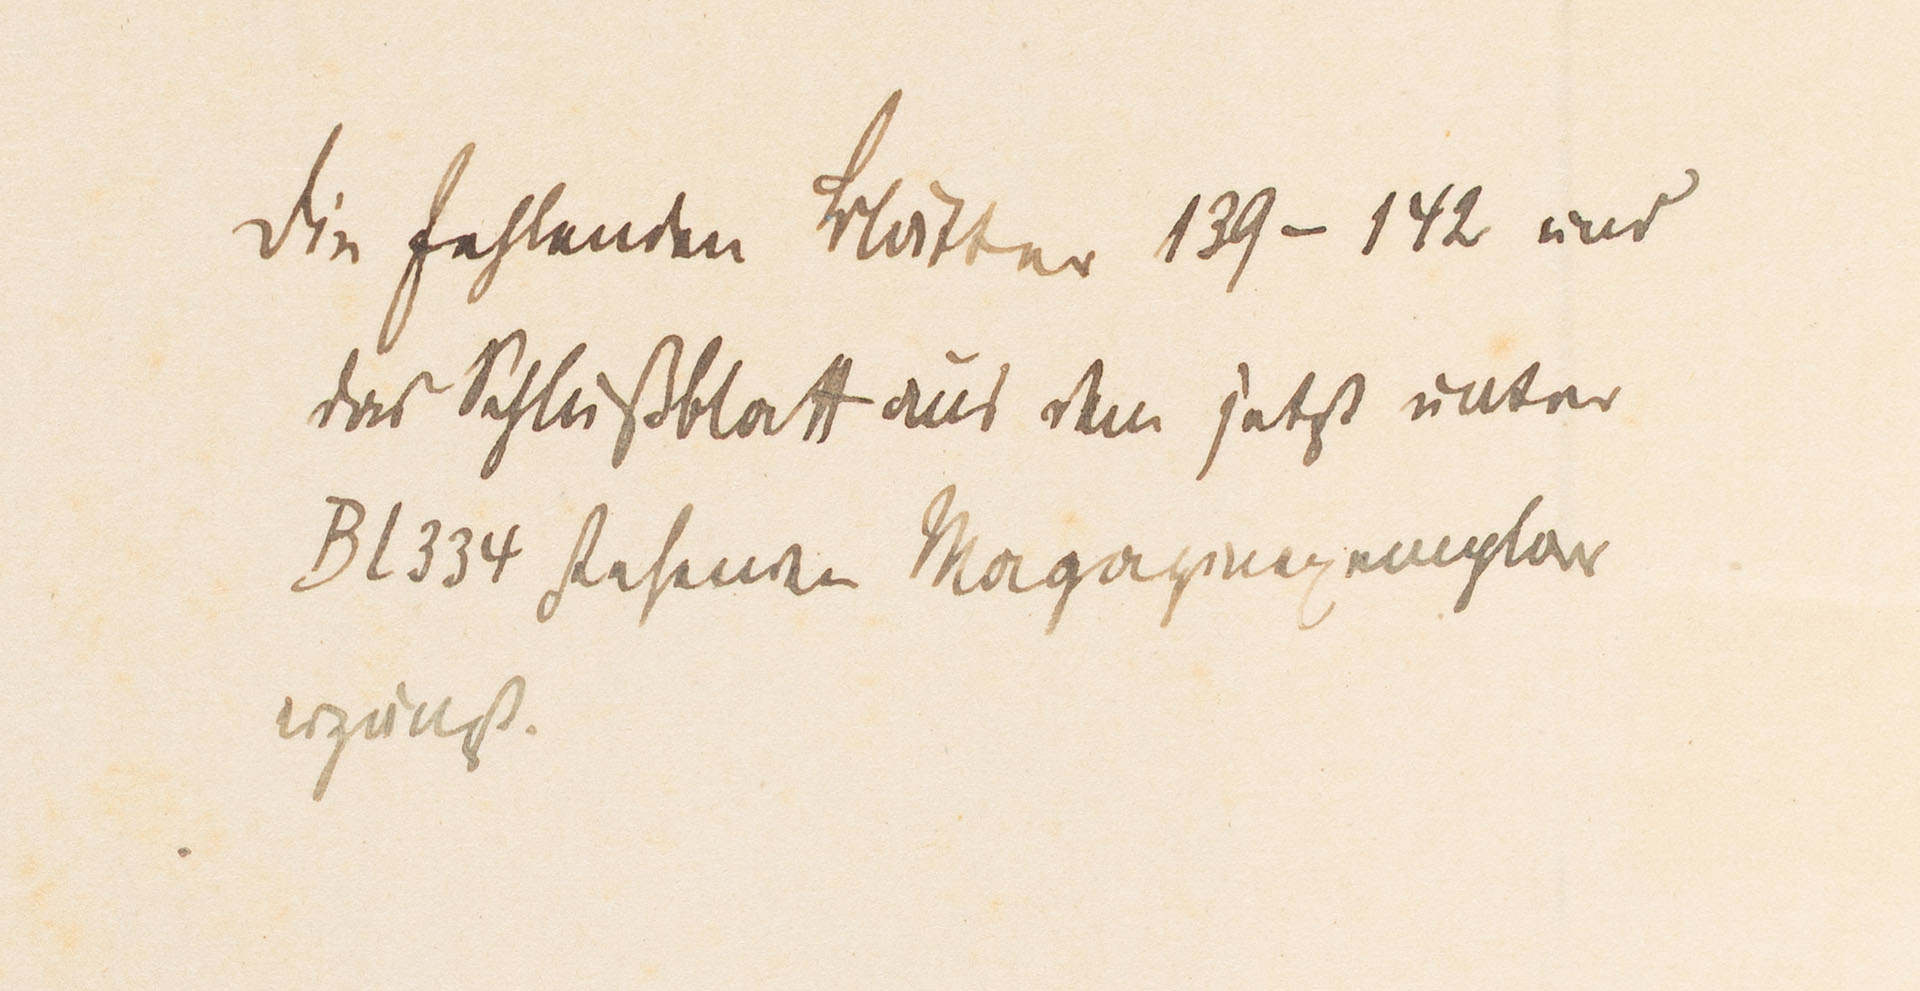 Die fehlenden Blätter 139–142 und
das Schlußblatt aus dem jetzt unter
Bl 334 stehenden Magazinexemplar
ergänzt.